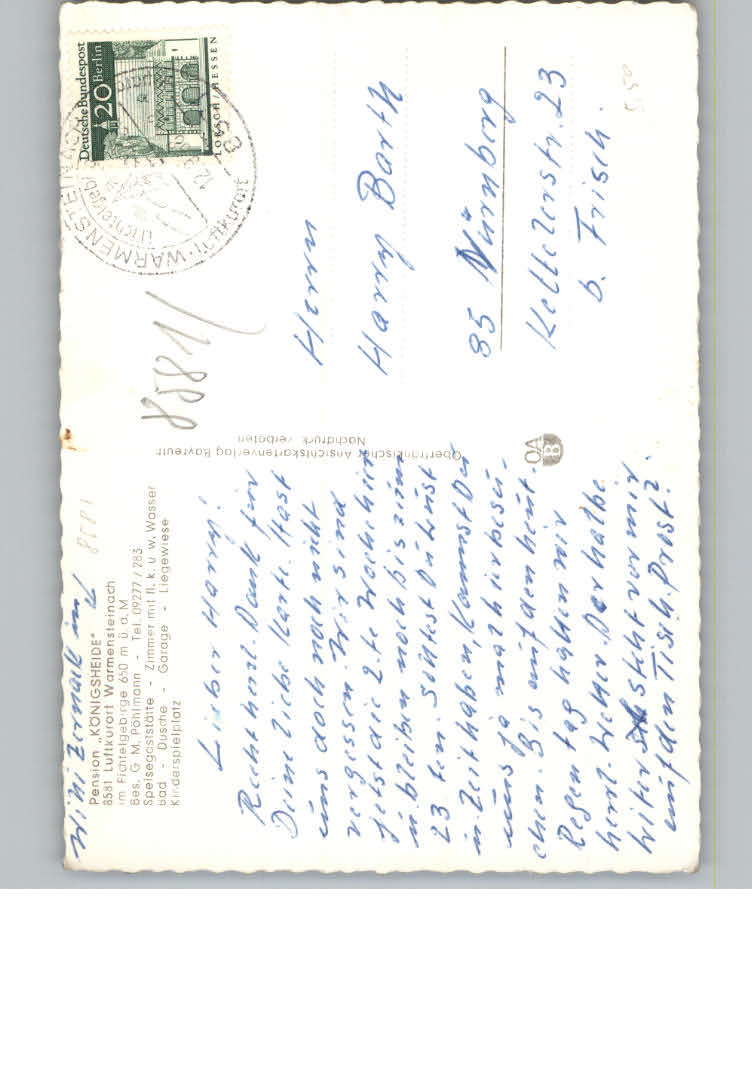 Willi Zernack u.
Pension „KÖNIGSHEIDE"
8581 Luftkurort Warmensteinach
im Fichtelgebirge 650 m ü. d. M.
Bes. G. M. Pöhlmann - Tel. 09277/283
Speisegaststätte - Zimmer mit fl. k. u. w. Wasser
Bad - Dusche - Garage - Liegewiese
Kinderspielplatz
8581
Lieber Harry!
Recht herzl. Dank für
Deine liebe Karte. Hast
uns doch noch nicht
vergessen. Wir sind
jetzt die 2-te Woche hier
u. bleiben noch bis zum
23 ten. Solltest Du Lust
u. Zeit haben, kannst Du
uns ja mal hier besu-
chen. Bis auf den heut.
Regen tag hatten wir
herrl. Wetter. Der halbe
Liter steht vor mir
auf den Tisch. Prost!
Oberfränkischer Ansichtskartenverlag Bayreuth
Nachdruck verboten
OA
B
Deutsche Bundespost
20 Berlin
LORSCH/HESSEN
WARMENSTEINACH
Luftkurort
8581
Herrn
Harry Barth
85 Nürnberg
Kellerstr. 23
b. Frisch.